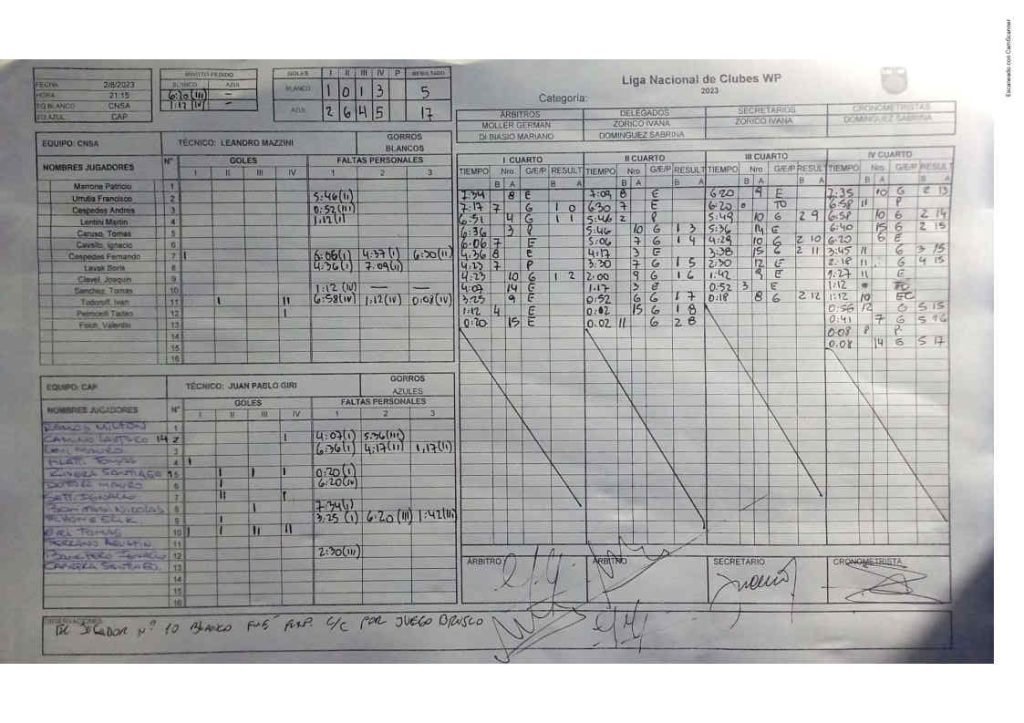 Escaneado con CamScanner
FECHA 2/8/2023
HORA 21:15
EQ BLANCO CNSA
EQ AZUL CAP
MINUTO PEDIDO
BLANCO AZUL
6:20 (III) —
1:12 (IV) —
GOLES I II III IV P RESULTADO
BLANCO 1 0 1 3 5
AZUL 2 6 4 5 17
Liga Nacional de Clubes WP
2023
Categoria:
ARBITROS DELEGADOS SECRETARIOS CRONOMETRISTAS
MOLLER GERMAN ZORICO IVANA ZORICO IVANA DOMINGUEZ SABRINA
DI BIASIO MARIANO DOMINGUEZ SABRINA
EQUIPO: CNSA TÉCNICO: LEANDRO MAZZINI GORROS BLANCOS
NOMBRES JUGADORES Nº GOLES FALTAS PERSONALES
I II III IV 1 2 3
Marrone Patricio 1
Urrutia Francisco 2 5:46(II)
Cespedes Andres 3 0:52(III)
Lentini Martin 4 1:12(I)
Caruso, Tomas 5
Cavallo, Ignacio 6
Cespedes Fernando 7 I 6:06(I) 4:23(I) 6:30(II)
Lavak Boris 8 4:36(I) 7:09(II)
Clavel, Joaquin 9
Sanchez, Tomas 10 1:12(IV) — —
Todoroff, Ivan 11 I II 6:58(IV) 1:12(IV) 0:08(IV)
12 I
13
14
15
16
EQUIPO: CAP TÉCNICO: JUAN PABLO GIRI GORROS AZULES
NOMBRES JUGADORES Nº GOLES FALTAS PERSONALES
I II III IV 1 2 3
RAMOS MILTON 1
14 2 I 4:07(I) 5:36(III)
3 6:36(I) 4:17(II) 1:17(II)
4 I
RIVERA SANTIAGO 15 I I I 0:20(I)
6 I 6:20(IV)
7 II I
NICOLAS 8 I 7:34(I)
9 I 3:25(I) 6:20(III) 1:42(III)
TOMAS 10 I I II II
AGUSTIN 11
12 2:30(III)
CARRERA SANTIAGO 13
14
15
16
I CUARTO II CUARTO III CUARTO IV CUARTO
TIEMPO Nro. G/E/P RESULT TIEMPO Nro. G/E/P RESULT TIEMPO Nro. G/E/P RESULT TIEMPO Nro. G/E/P RESULT
B A B A B A B A B A B A B A B A
7:34 8 E 7:09 8 E 6:20 9 E 7:35 10 G 2 13
7:17 7 G 1 0 6:30 7 E 6:20 TO 6:58 11 P
6:51 4 G 1 1 5:46 2 P 5:49 10 G 2 9 6:58 10 G 2 14
6:36 3 P 5:46 10 G 1 3 5:36 14 E 6:40 15 G 2 15
6:06 7 E 5:06 7 G 1 4 4:29 10 G 2 10 6:20 6 E
4:36 8 E 4:17 3 E 3:38 15 G 2 11 3:45 11 G 3 15
4:23 7 P 3:30 7 G 1 5 2:30 12 E 2:18 11 G 4 15
4:23 10 G 1 2 2:00 9 G 1 6 1:42 9 E 1:27 11 E
4:07 14 E 1:17 3 E 0:52 3 E 1:12 TO
3:25 9 E 0:52 6 G 1 7 0:18 8 G 2 12 1:12 10 EC
1:12 4 E 0:02 15 G 1 8 0:56 12 G 5 15
0:20 15 E 0:02 11 G 2 8 0:41 7 G 5 16
0:08 P
0:08 14 G 5 17
ARBITRO ARBITRO SECRETARIO CRONOMETRISTA
OBSERVACIONES
EL JUGADOR Nº 10 BLANCO FUE EXP. C/C POR JUEGO BRUSCO